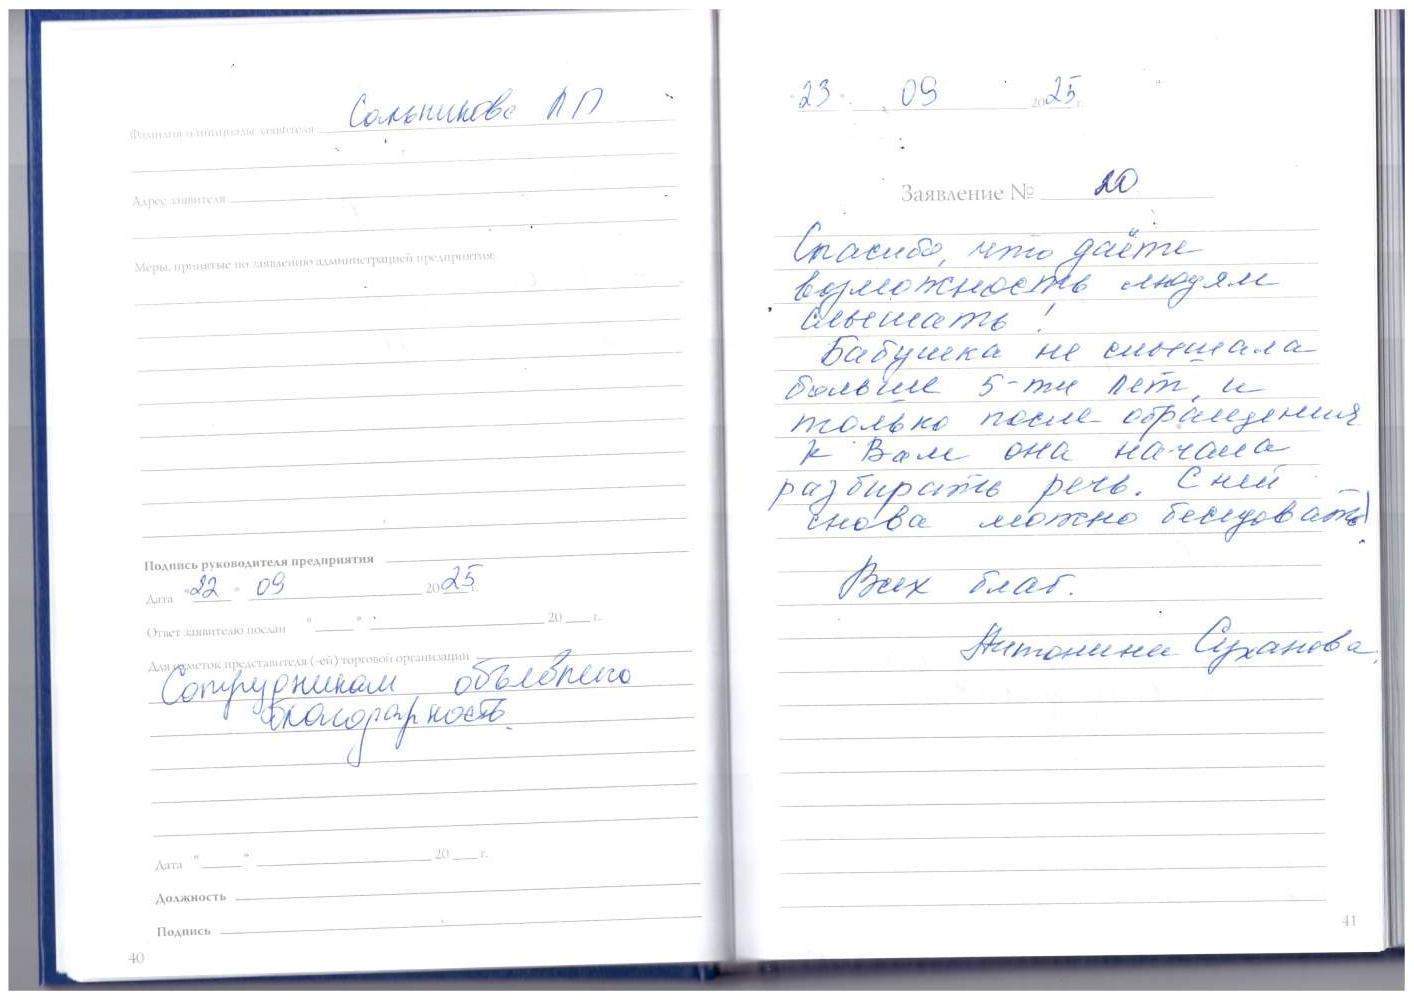 Фамилия и инициалы заявителя Сальникова Л П
Адрес заявителя
Меры, принятые по заявлению администрацией предприятия:
Подпись руководителя предприятия
Дата "22" 09 2025 г.
Ответ заявителю послан " " 20 г.
Для пометок представителя (-ей) торговой организации
Сотрудникам объявлено
благодарность.
Дата " " 20 г.
Должность
Подпись
40
"23" 09 2025 г.
Заявление № 20
Спасибо, что даёте
возможность людям
слышать!
Бабушка не слышала
больше 5-ти лет, и
только после обращения
к Вам она начала
разбирать речь. С ней
снова можно беседовать!
Всех благ.
Антонина Суханова.
41